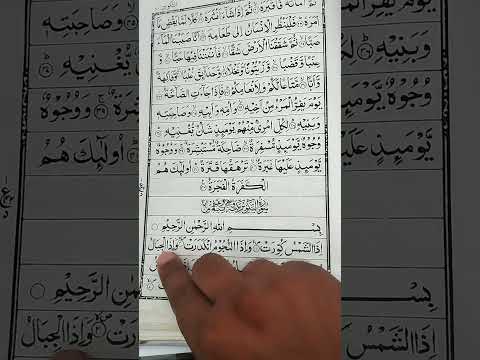 ثُمَّ اَمَاتَهٗ فَاَقْبَرَهٗ ثُمَّ اِذَا شَآءَ اَنْشَرَهٗ كَلَّا لَمَّا يَقْضِ مَاۤ
اَمَرَهٗ فَلْيَنْظُرِ الْاِنْسَانُ اِلٰى طَعَامِهٖۤ اَنَّا صَبَبْنَا الْمَآءَ
صَبًّا ثُمَّ شَقَقْنَا الْاَرْضَ شَقًّا فَاَنْۢبَتْنَا فِيْهَا حَبًّا وَّ
عِنَبًا وَّقَضْبًا وَّزَيْتُوْنًا وَّنَخْلًا وَّحَدَآئِقَ غُلْبًا وَّفَاكِهَةً
وَّاَبًّا مَّتَاعًا لَّكُمْ وَلِاَنْعَامِكُمْ فَاِذَا جَآءَتِ الصَّآخَّةُ
يَوْمَ يَفِرُّ الْمَرْءُ مِنْ اَخِيْهِ وَاُمِّهٖ وَاَبِيْهِ وَصَاحِبَتِهٖ
وَبَنِيْهِ لِكُلِّ امْرِئٍ مِّنْهُمْ يَوْمَئِذٍ شَاْنٌ يُّغْنِيْهِ
وُجُوْهٌ يَّوْمَئِذٍ مُّسْفِرَةٌ ضَاحِكَةٌ مُّسْتَبْشِرَةٌ وَوُجُوْهٌ
يَّوْمَئِذٍ عَلَيْهَا غَبَرَةٌ تَرْهَقُهَا قَتَرَةٌ اُولٰٓئِكَ هُمُ
الْكَفَرَةُ الْفَجَرَةُ
بِسْمِ اللهِ الرَّحْمٰنِ الرَّحِيْمِ
اِذَا الشَّمْسُ كُوِّرَتْ وَاِذَا النُّجُوْمُ انْكَدَرَتْ وَاِذَا الْجِبَالُ